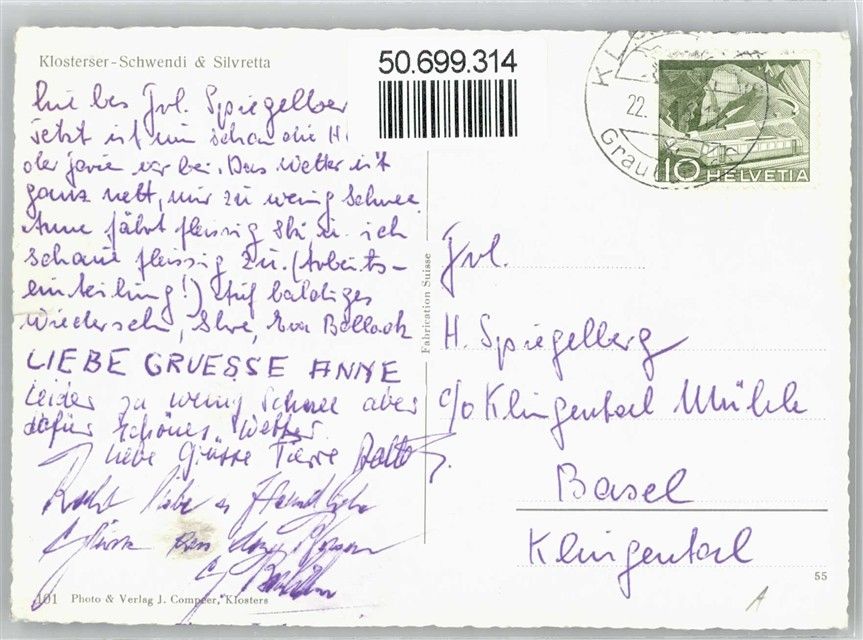 Klosterser-Schwendi & Silvretta
50.699.314
22.
10 HELVETIA
Frl. Spiegelber
Jetzt ist nun schon die H
vorbei. Das Wetter ist
ganz nett, nur zu wenig Schnee
Anne fährt fleissig Ski u. ich
schaue fleissig zu. (Arbeits-
einteilung!) Auf baldiges
Wiedersehn, Ihre, Eva Bollack
LIEBE GRUESSE ANNE
Leider zu wenig Schnee aber
dafür schönes Wetter.
liebe Grüsse
Recht liebe
Fabrication Suisse
Frl.
H. Spiegelberg
c/o Klingental Mühle
Basel
Klingental
55
101 Photo & Verlag J. Compeer, Klosters